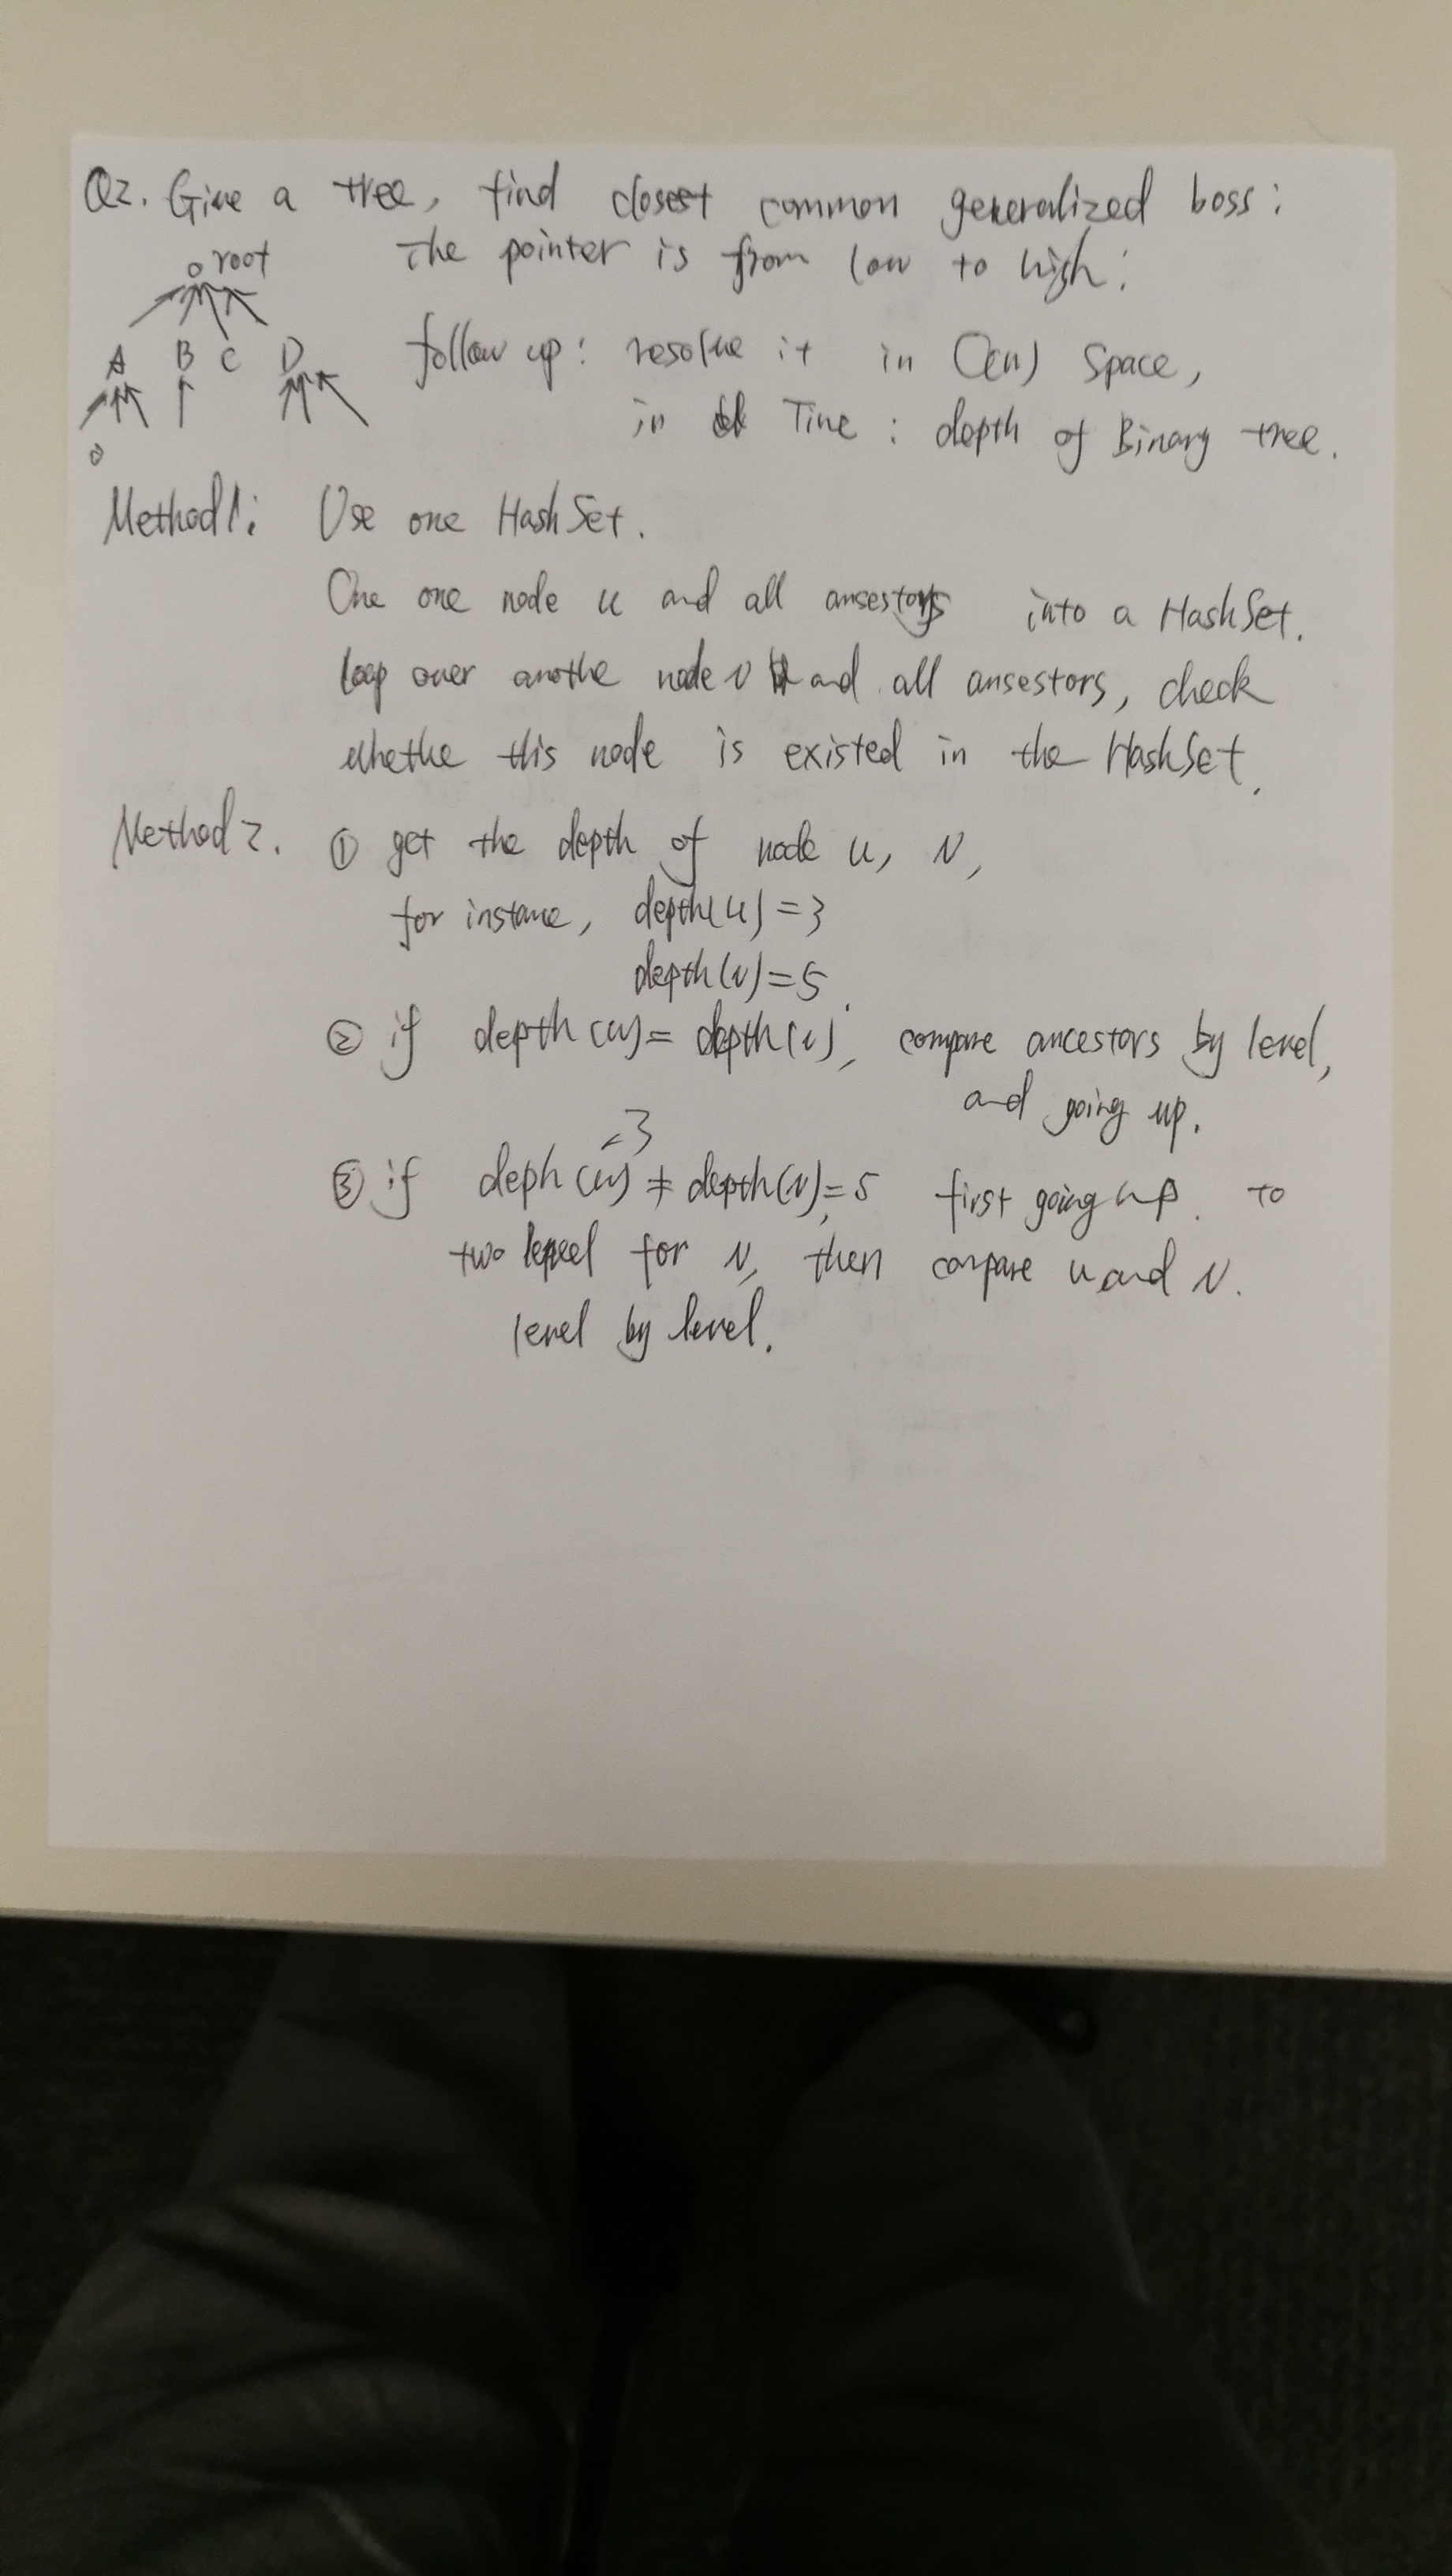 Q2. Give a tree, find closest common generalized boss:
The pointer is from low to high:
root
A B C D
follow up: resolve it in O(n) Space,
in Time: depth of Binary tree.
Method 1: Use one HashSet.
One one node u and all ansestors into a HashSet.
loop over anothe node v and all ansestors, check
whethe this node is existed in the HashSet.
Method 2. ① get the depth of node u, v,
for instance, depth(u) = 3
depth(v) = 5.
② if depth(u) = depth(v), compare ancestors by level,
and going up.
=3
③ if deph(u) ≠ depth(v)=5, first going up to
two level for v, then compare u and v.
level by level.